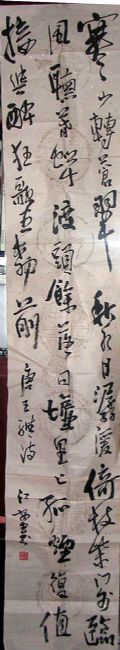 寒山轉蒼翠秋水日潺湲倚杖柴門外臨
風聽暮蟬渡頭餘落日墟里上孤煙復值
接輿醉狂歌五柳前 唐王維詩